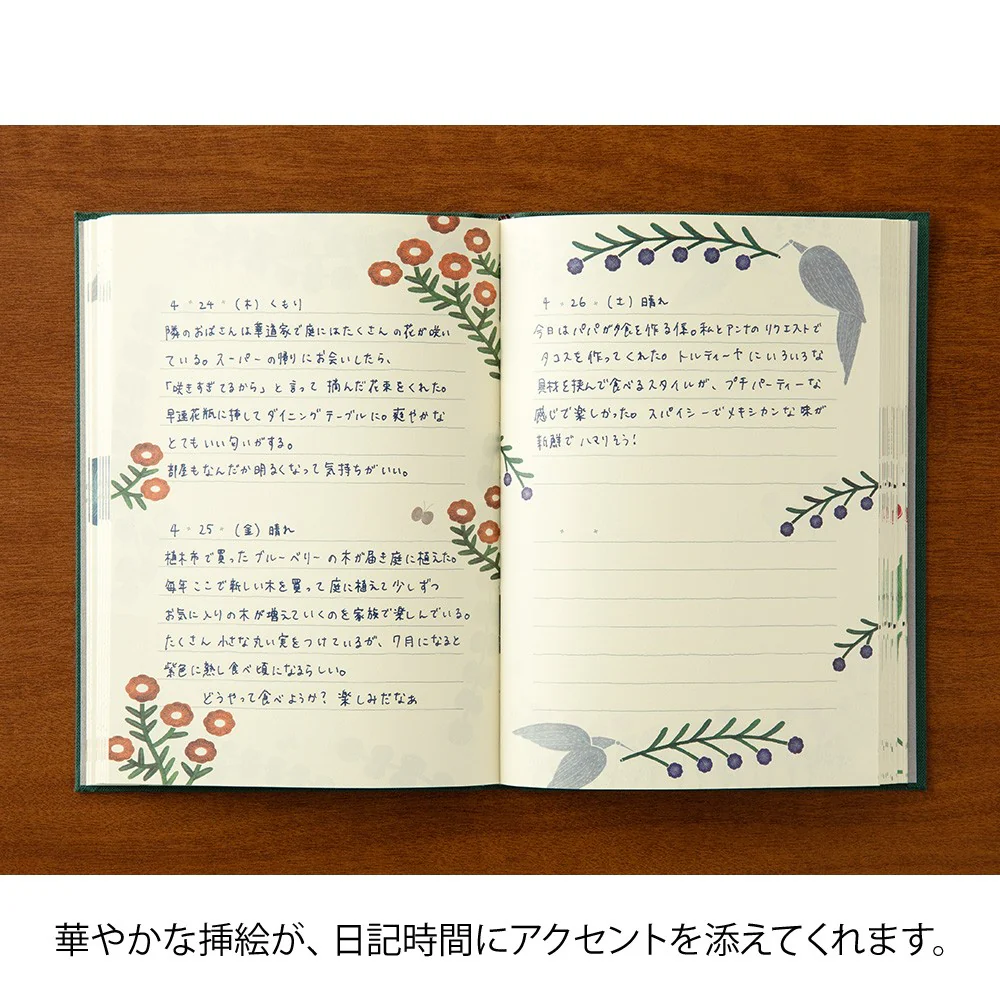 4・24・(木) くもり
隣のおばさんは華道家で庭にはたくさんの花が咲い
ている。スーパーの帰りにお会いしたら、
「咲きすぎてるから」と言って摘んだ花束をくれた。
早速花瓶に挿してダイニングテーブルに。爽やかな
とてもいい匂いがする。
部屋もなんだか明るくなって気持ちがいい。
4・25・(金) 晴れ
植木市で買ったブルーベリーの木が届き庭に植えた。
毎年ここで新しい木を買って庭に植えて少しずつ
お気に入りの木が増えていくのを家族で楽しんでいる。
たくさん小さな丸い実をつけているが、7月になると
紫色に熟し食べ頃になるらしい。
どうやって食べようか?楽しみだなぁ
4・26・(土) 晴れ
今日はパパが夕食を作る係。私とアンナのリクエストで
タコスを作ってくれた。トルティーヤにいろいろな
具材を挟んで食べるスタイルが、プチパーティーな
感じで楽しかった。スパイシーでメキシカンな味が
新鮮でハマりそう!
華やかな挿絵が、日記時間にアクセントを添えてくれます。